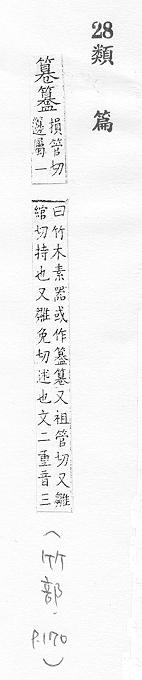 28 類篇
篹簋 損管切
籩屬一
曰竹木素器或作簋䉵又祖管切又雛
綰切持也又雛免切述也文二重音三
(竹部 P.170)